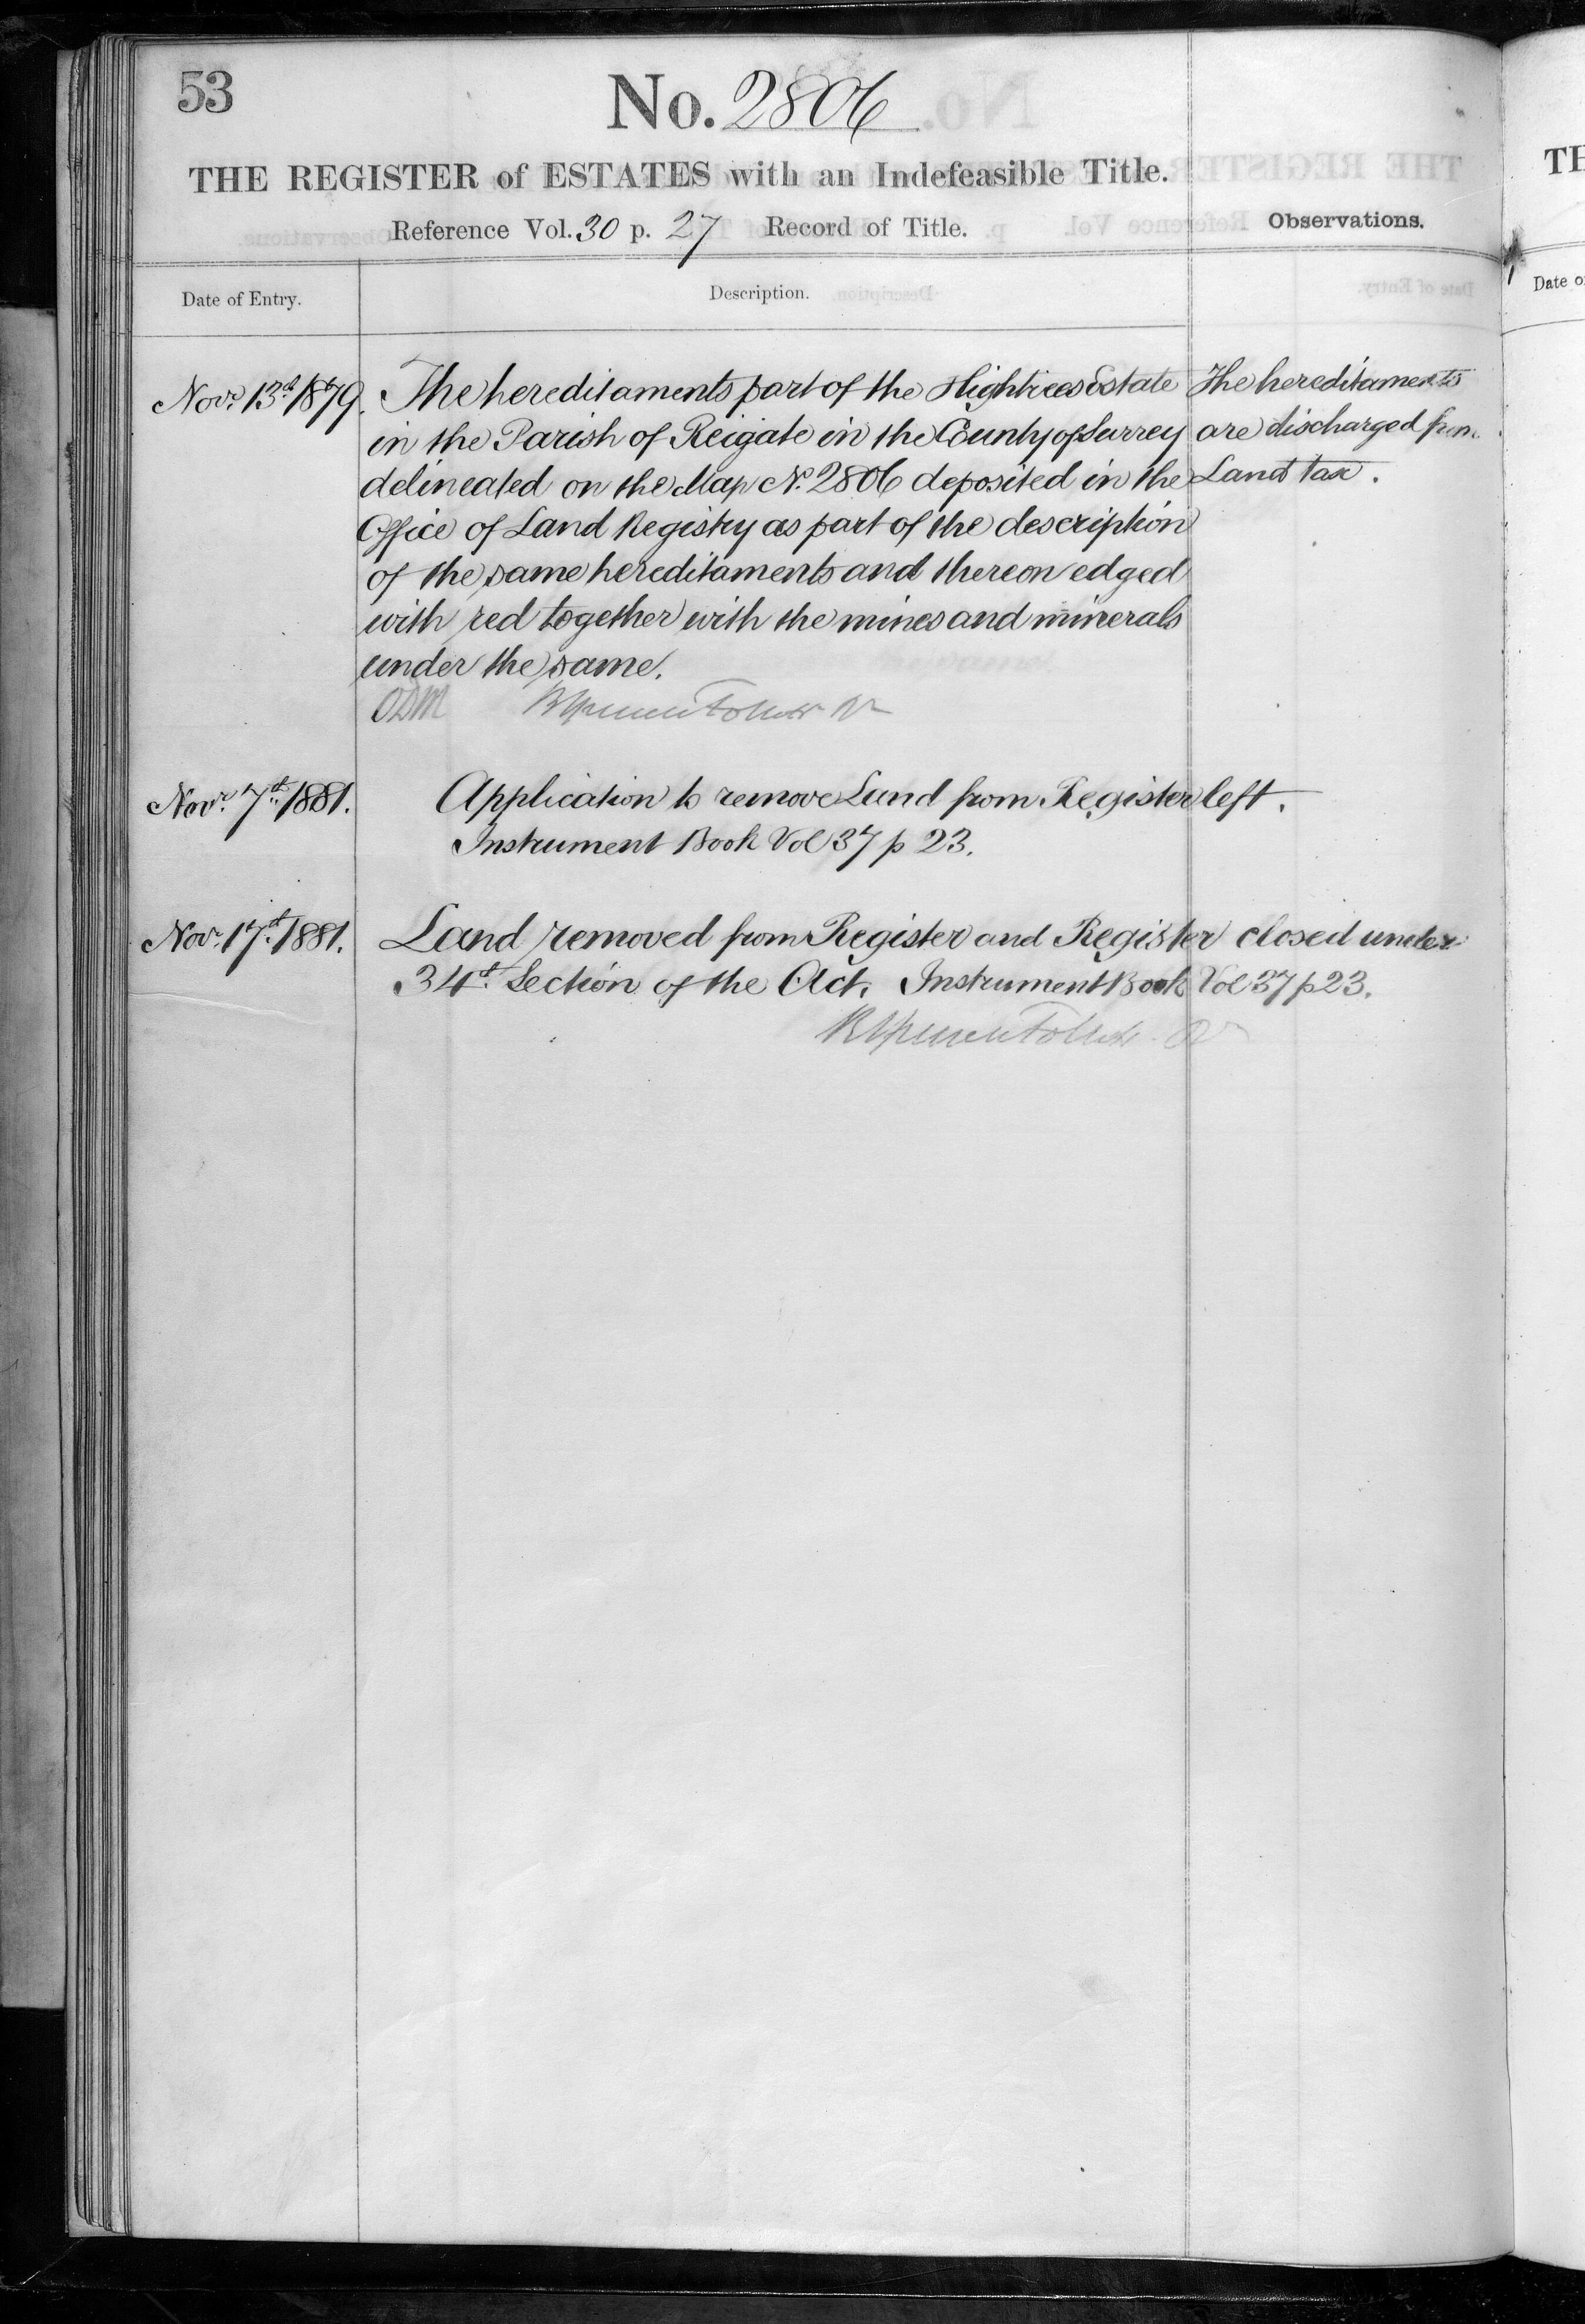 53
No. 2806
THE REGISTER of ESTATES with an Indefeasible Title.
Reference Vol. 30 p. 27 Record of Title.
Observations.
Date of Entry.
Description.
Novr. 13d 1879.
The hereditaments part of the Hightrees Estate
in the Parish of Reigate in the County of Surrey
delineated on the Map No. 2806 deposited in the
Office of Land Registry as part of the description
of the same hereditaments and thereon edged
with red together with the mines and minerals
under the same.
The hereditaments
are discharged from
Land tax.
Novr. 7th 1881.
Application to remove Land from Register left.
Instrument Book Vol 37 p 23.
Nov. 17th 1881.
Land removed from Register and Register closed under
34th Section of the Act. Instrument Book Vol 37 p 23.
TH
Date o